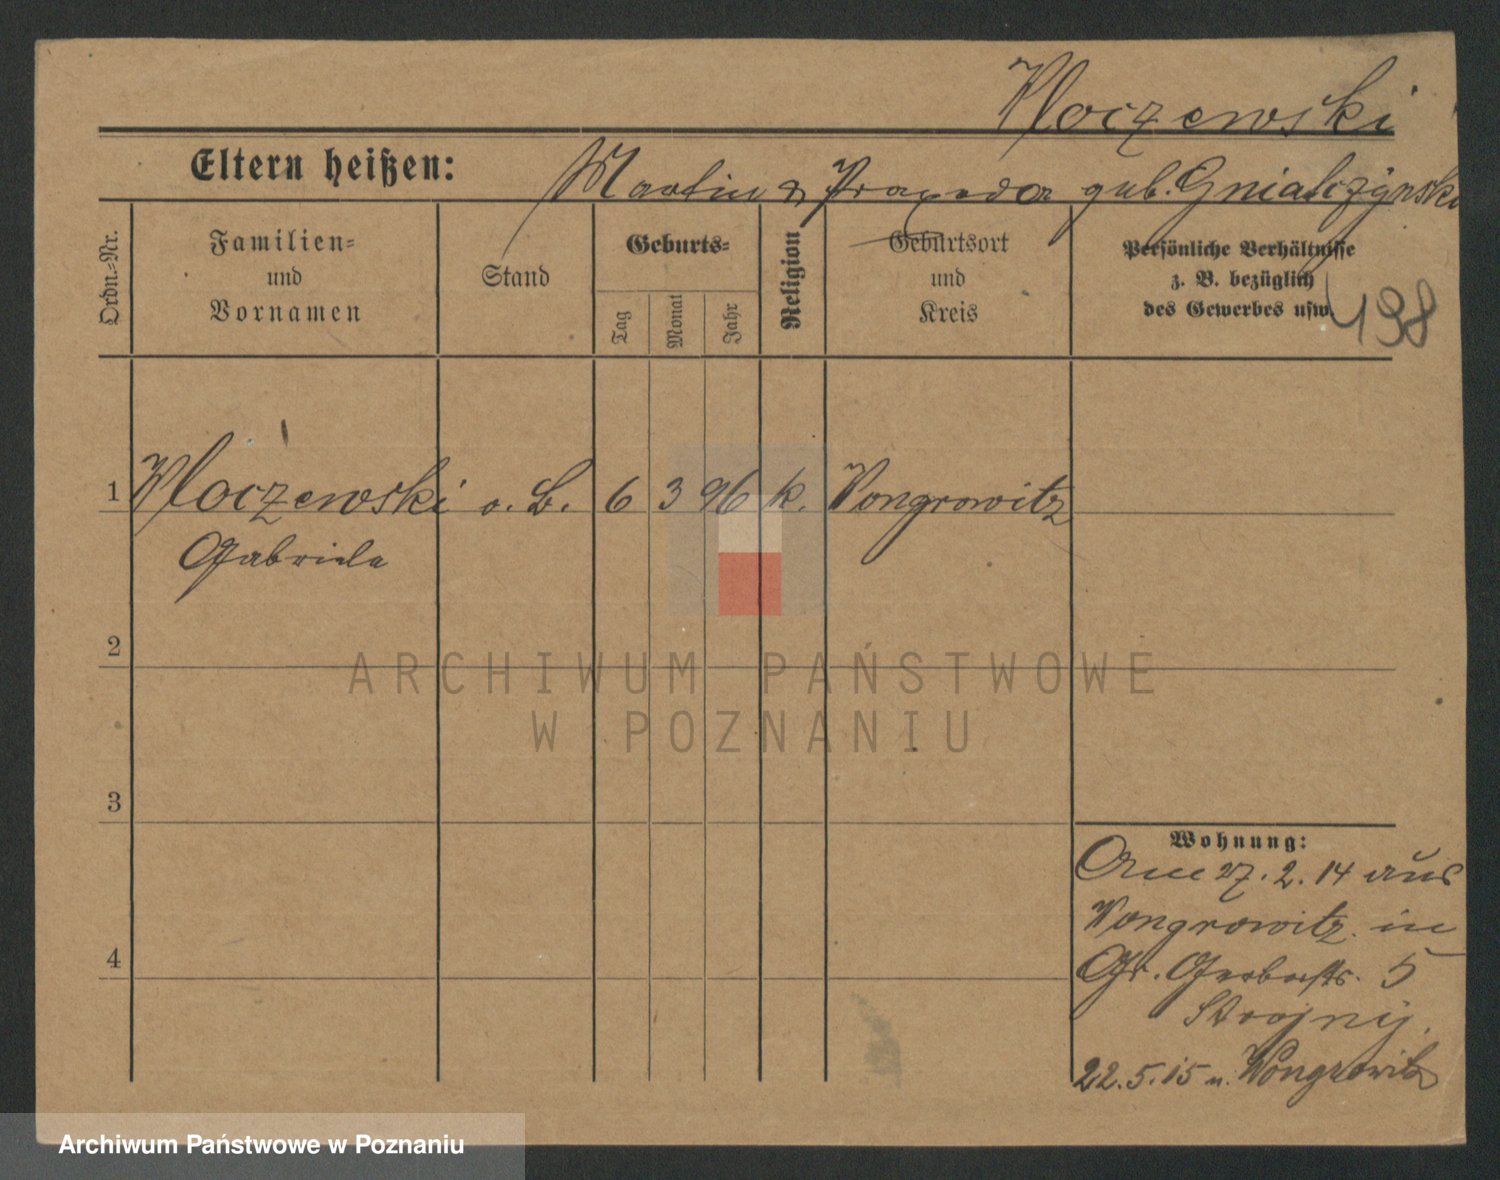 Wloczewski
Eltern heißen: Martin & Praxeda geb. Gnialczynski
Ordn.-Nr.
Familien-
und
Vornamen
Stand
Geburts-
Tag
Monat
Jahr
Religion
Geburtsort
und
Kreis
Persönliche Verhältnisse
z. B. bezüglich
des Gewerbes usw.
198
1 Wloczewski o. B. 6 3 96 k. Wongrowitz
Gabriela
2
3
4
Wohnung:
Am 27. 2. 14 aus
Wongrowitz in
Gr. Gerberstr. 5
Strojny.
22. 5. 15 n. Wongrowitz
ARCHIWUM PAŃSTWOWE
W POZNANIU
Archiwum Państwowe w Poznaniu